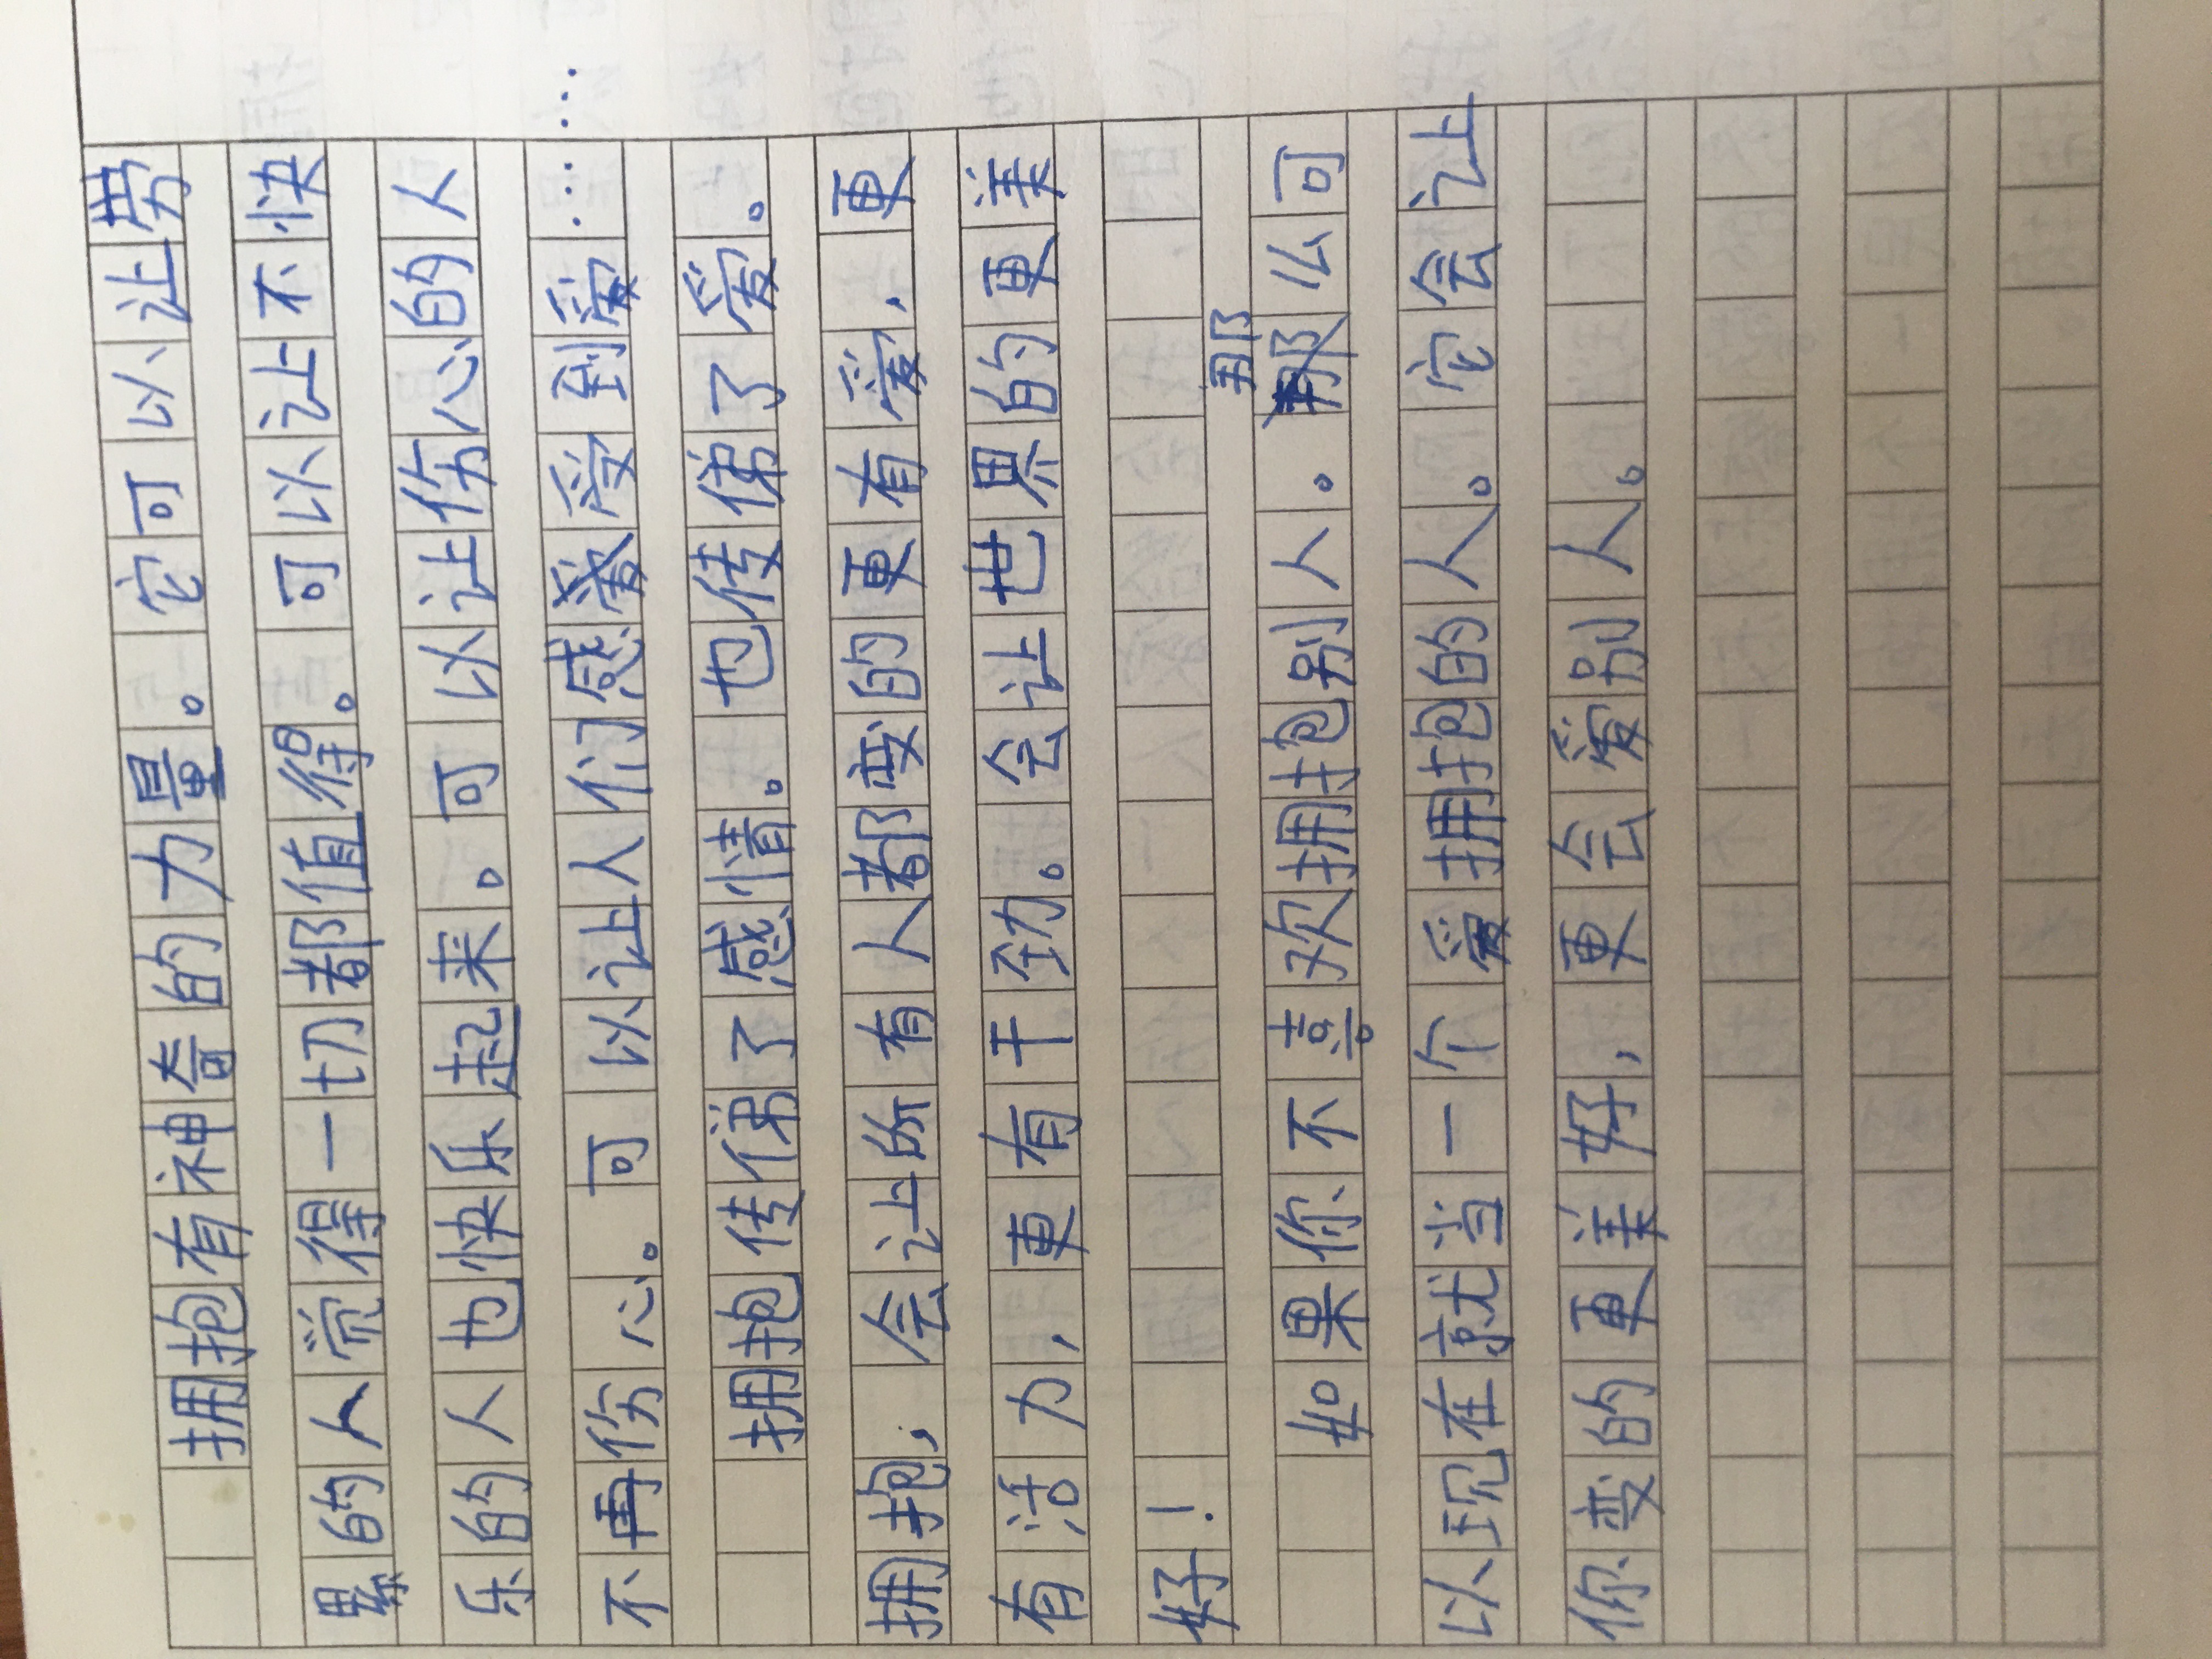 拥抱有神奇的力量。它可以让劳
累的人觉得一切都值得。可以让不快
乐的人也快乐起来。可以让伤心的人
不再伤心。可以让人们感受到爱……
拥抱传俤了感情。也传俤了爱。
拥抱，会让所有人都变的更有爱，更
有活力，更有干劲。会让世界的更美
好！
如果你不喜欢拥抱别人。那么可
以现在就当一个爱拥抱的人。它会让
你变的更美好，更会爱别人。